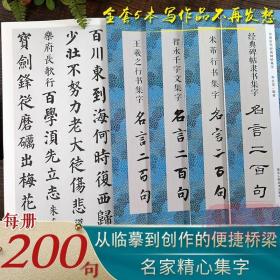 全套5本 写作品不再发愁
百川東到海何時復
少壯不努力老大徒傷悲
樂府長歌行
百學須先立志 朱
寶劍鋒從磨礪出梅花
王羲之行书集字
名言二百句
智永千字文集字
名言二百句
米芾行书集字
名言二百句
经典碑帖隶书集字
名言二百句
每册
200句
从临摹到创作的便捷桥梁
名家精心集字